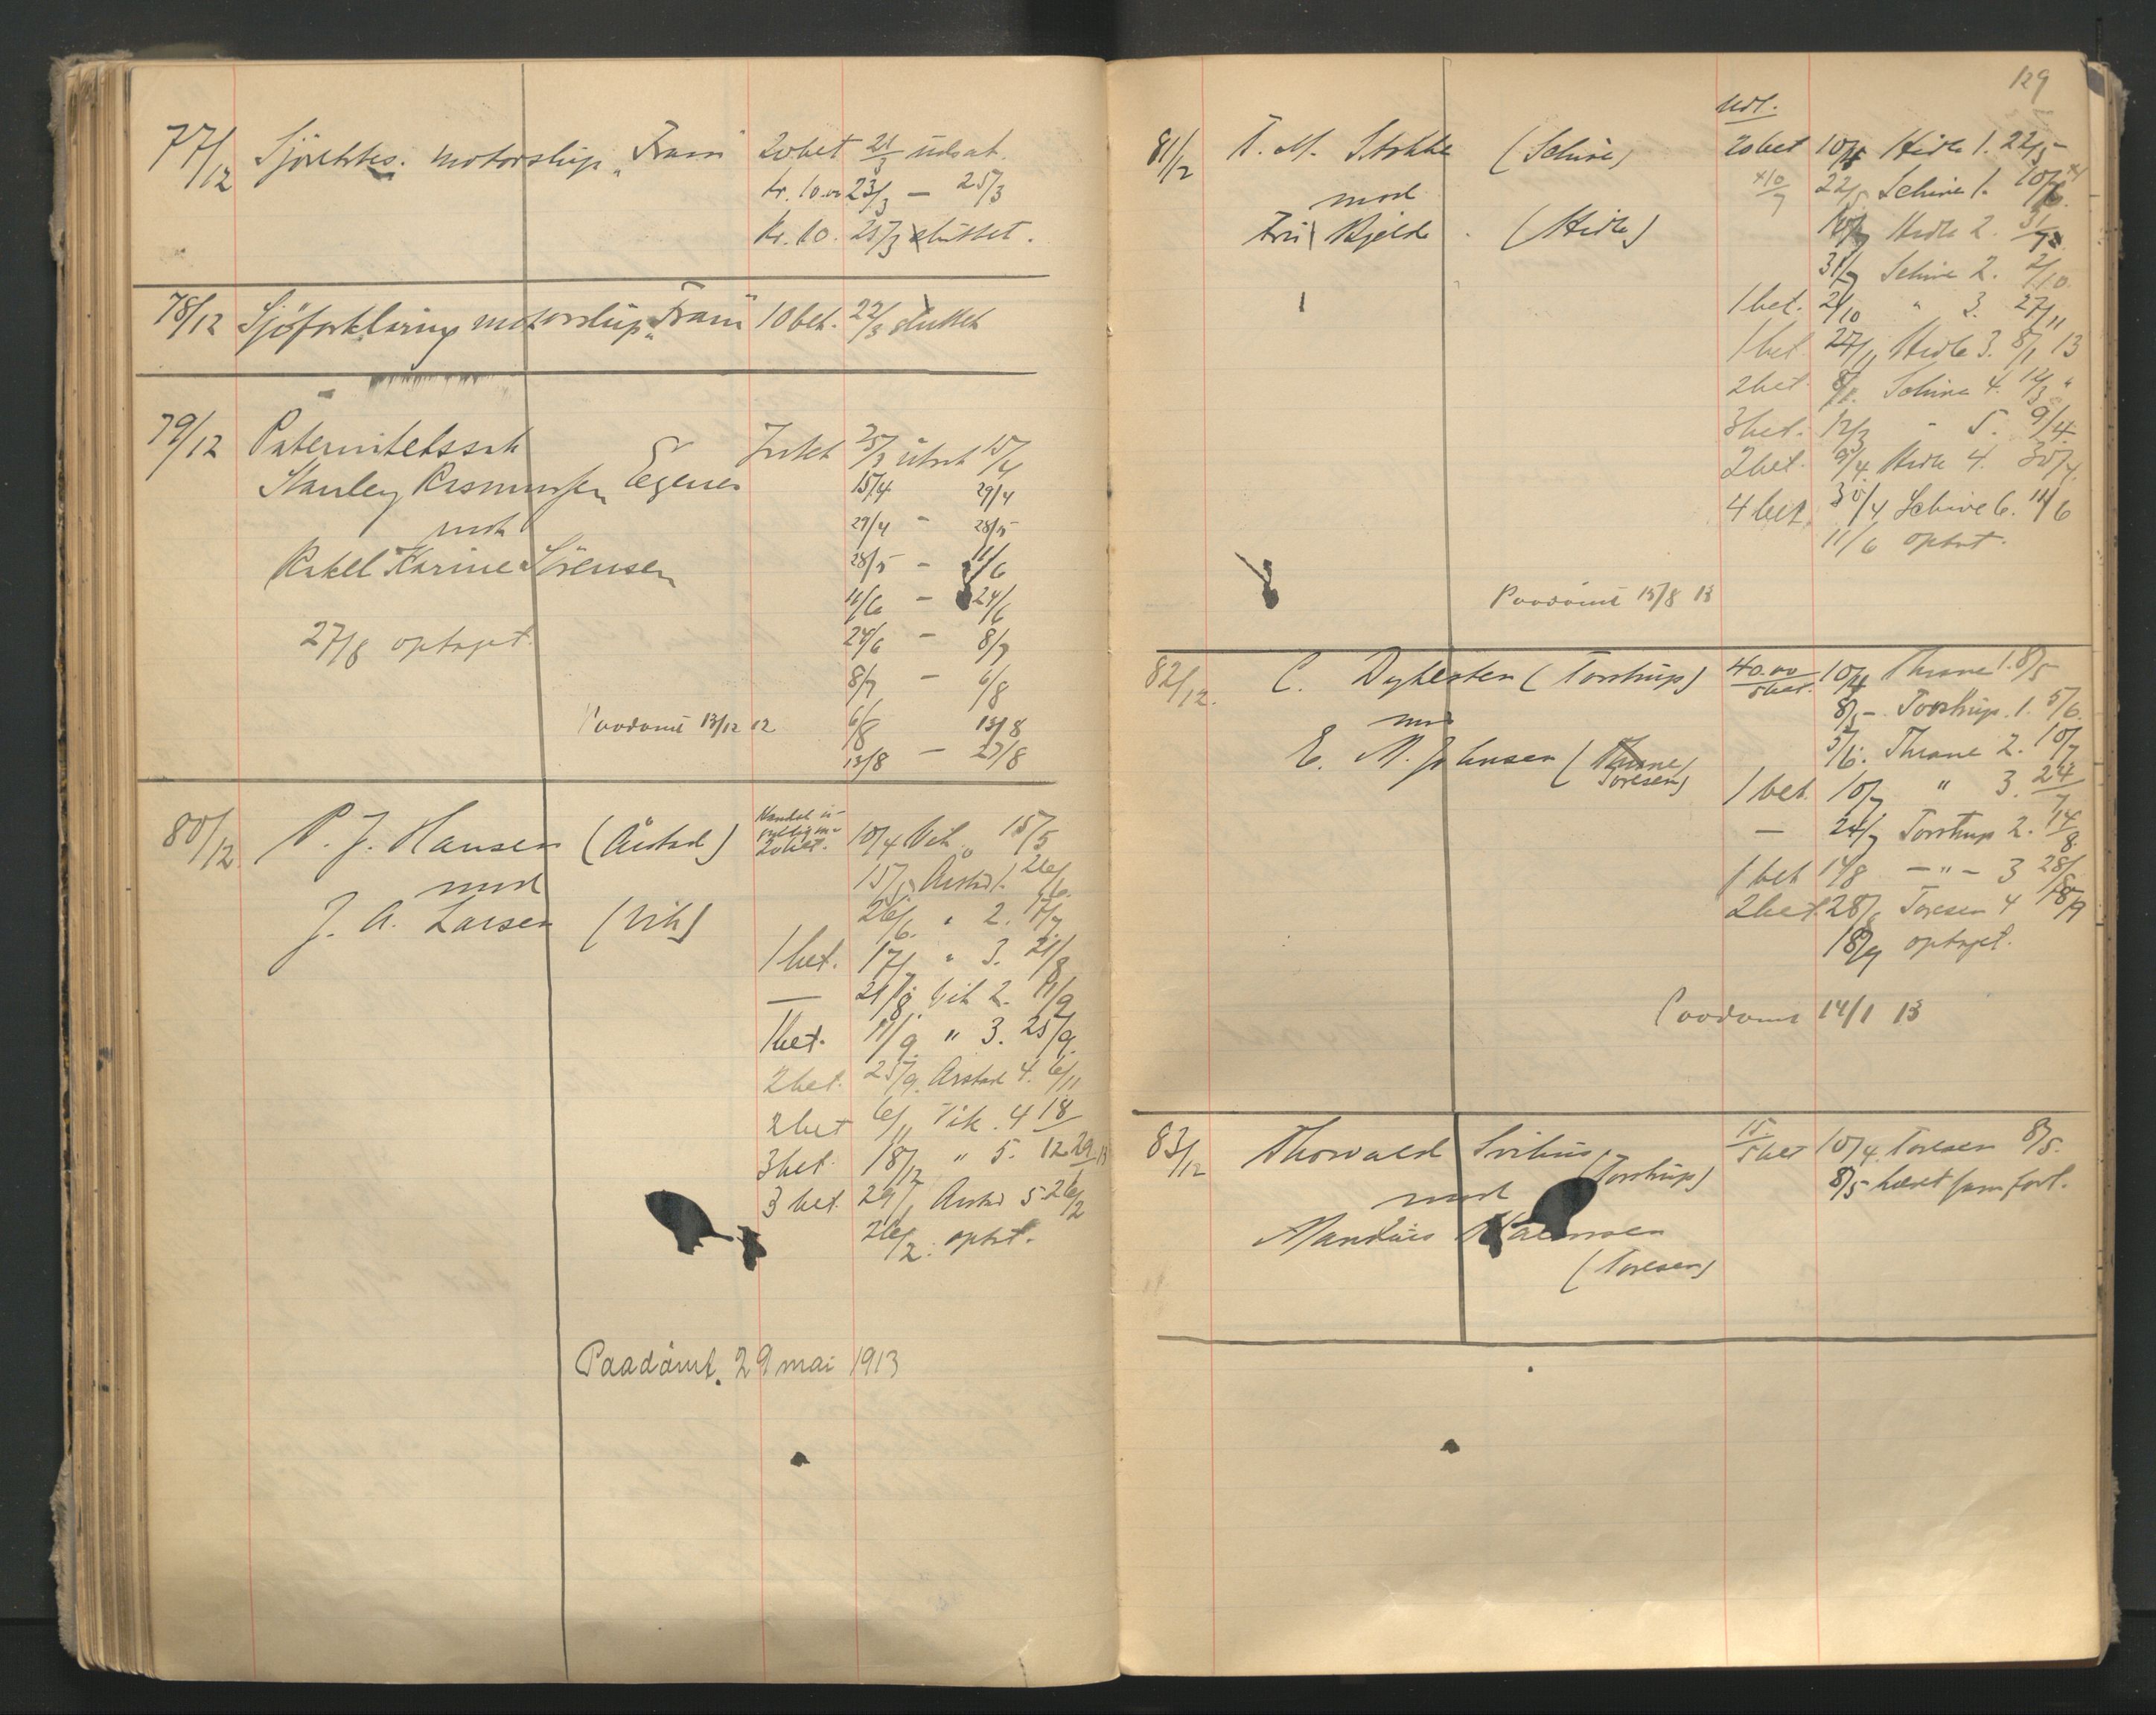 77/12 Sjörettes. motorskip "Fram" 20 bet 21/3 udsat.
kr. 10.00 23/3 — 25/3
kr. 10. 25/3 sluttet.
78/12 Sjöforklaring motorskip "Fram" 10 bet. 22/3 sluttet
79/12 Paternitetssak
Stanley Rasmussen Egenes
mot
Rakel Karine Sörensen
27/8 optaget.
25/3 utsat 15/4
15/4 29/4
29/4 - 28/5
28/5 - 11/6
11/6 - 24/6
24/6 - 8/7
8/7 - 6/8
6/8 13/8
13/8 - 27/8
Paadömt 13/12 12
80/12 P. J. Hansen (Årstad)
mod
J. A. Larsen (Vik)
20 bet. 10/4 Vik 15/5
15/5 Årstad 1. 26/6.
26/6. " 2. 17/7
1 bet. 17/7 " 3. 21/8
— 21/8 Vik 2. 11/9
1 bet. 11/9. " 3. 25/9.
2 bet. 25/9. Årstad 4. 6/11
2 bet 6/11 Vik. 4 18/12
3 bet. 18/12 " 5. 29/1 13
3 bet. 29/1 Årstad 5 26/2
26/2. optat.
Paadömt. 29 mai 1913
129
Udl.
81/12 T. M. Stokke (Schive)
mod
Fru Kjelde (Hidle)
20 bet 10/4 Hidle 1. 22/5
22/5 Schive 1.
Hidle 2. 31/7
31/7 Schive 2. 2/10.
1 bet. 2/10 " 3. 27/11
1 bet. 27/11 Hidle 3. 8/1 13
2 bet. 8/1. Schive 4. 12/3 "
3 bet. 12/3 " 5. 9/4.
2 bet. 9/4 Hidle 4. 30/4.
4 bet. 30/4 Schive 6. 11/6
11/6 optat.
Paadömt 15/8 13
82/12. C. Dykesten (Torstrup)
mod
E. M. Johnsen (Thrane
Toresen)
40.00 5 bet. 10/4 Thrane 1. 8/5
8/5 - Torstrup. 1. 5/6.
5/6. Thrane 2. 10/7
1 bet. 10/7 " 3. 24/7
— 24/7 Torstrup 2. 14/8.
1 bet 14/8 — " — 3 28/8
2 bet. 28/8 Toresen 4 18/9
18/9 optaget.
Paadömt 14/1 13
83/12 Thorvald Svihus
(Torstrup)
mod
(Toresen)
15 5 bet 10/4. Toresen 8/5.
8/5 hævet som forl.